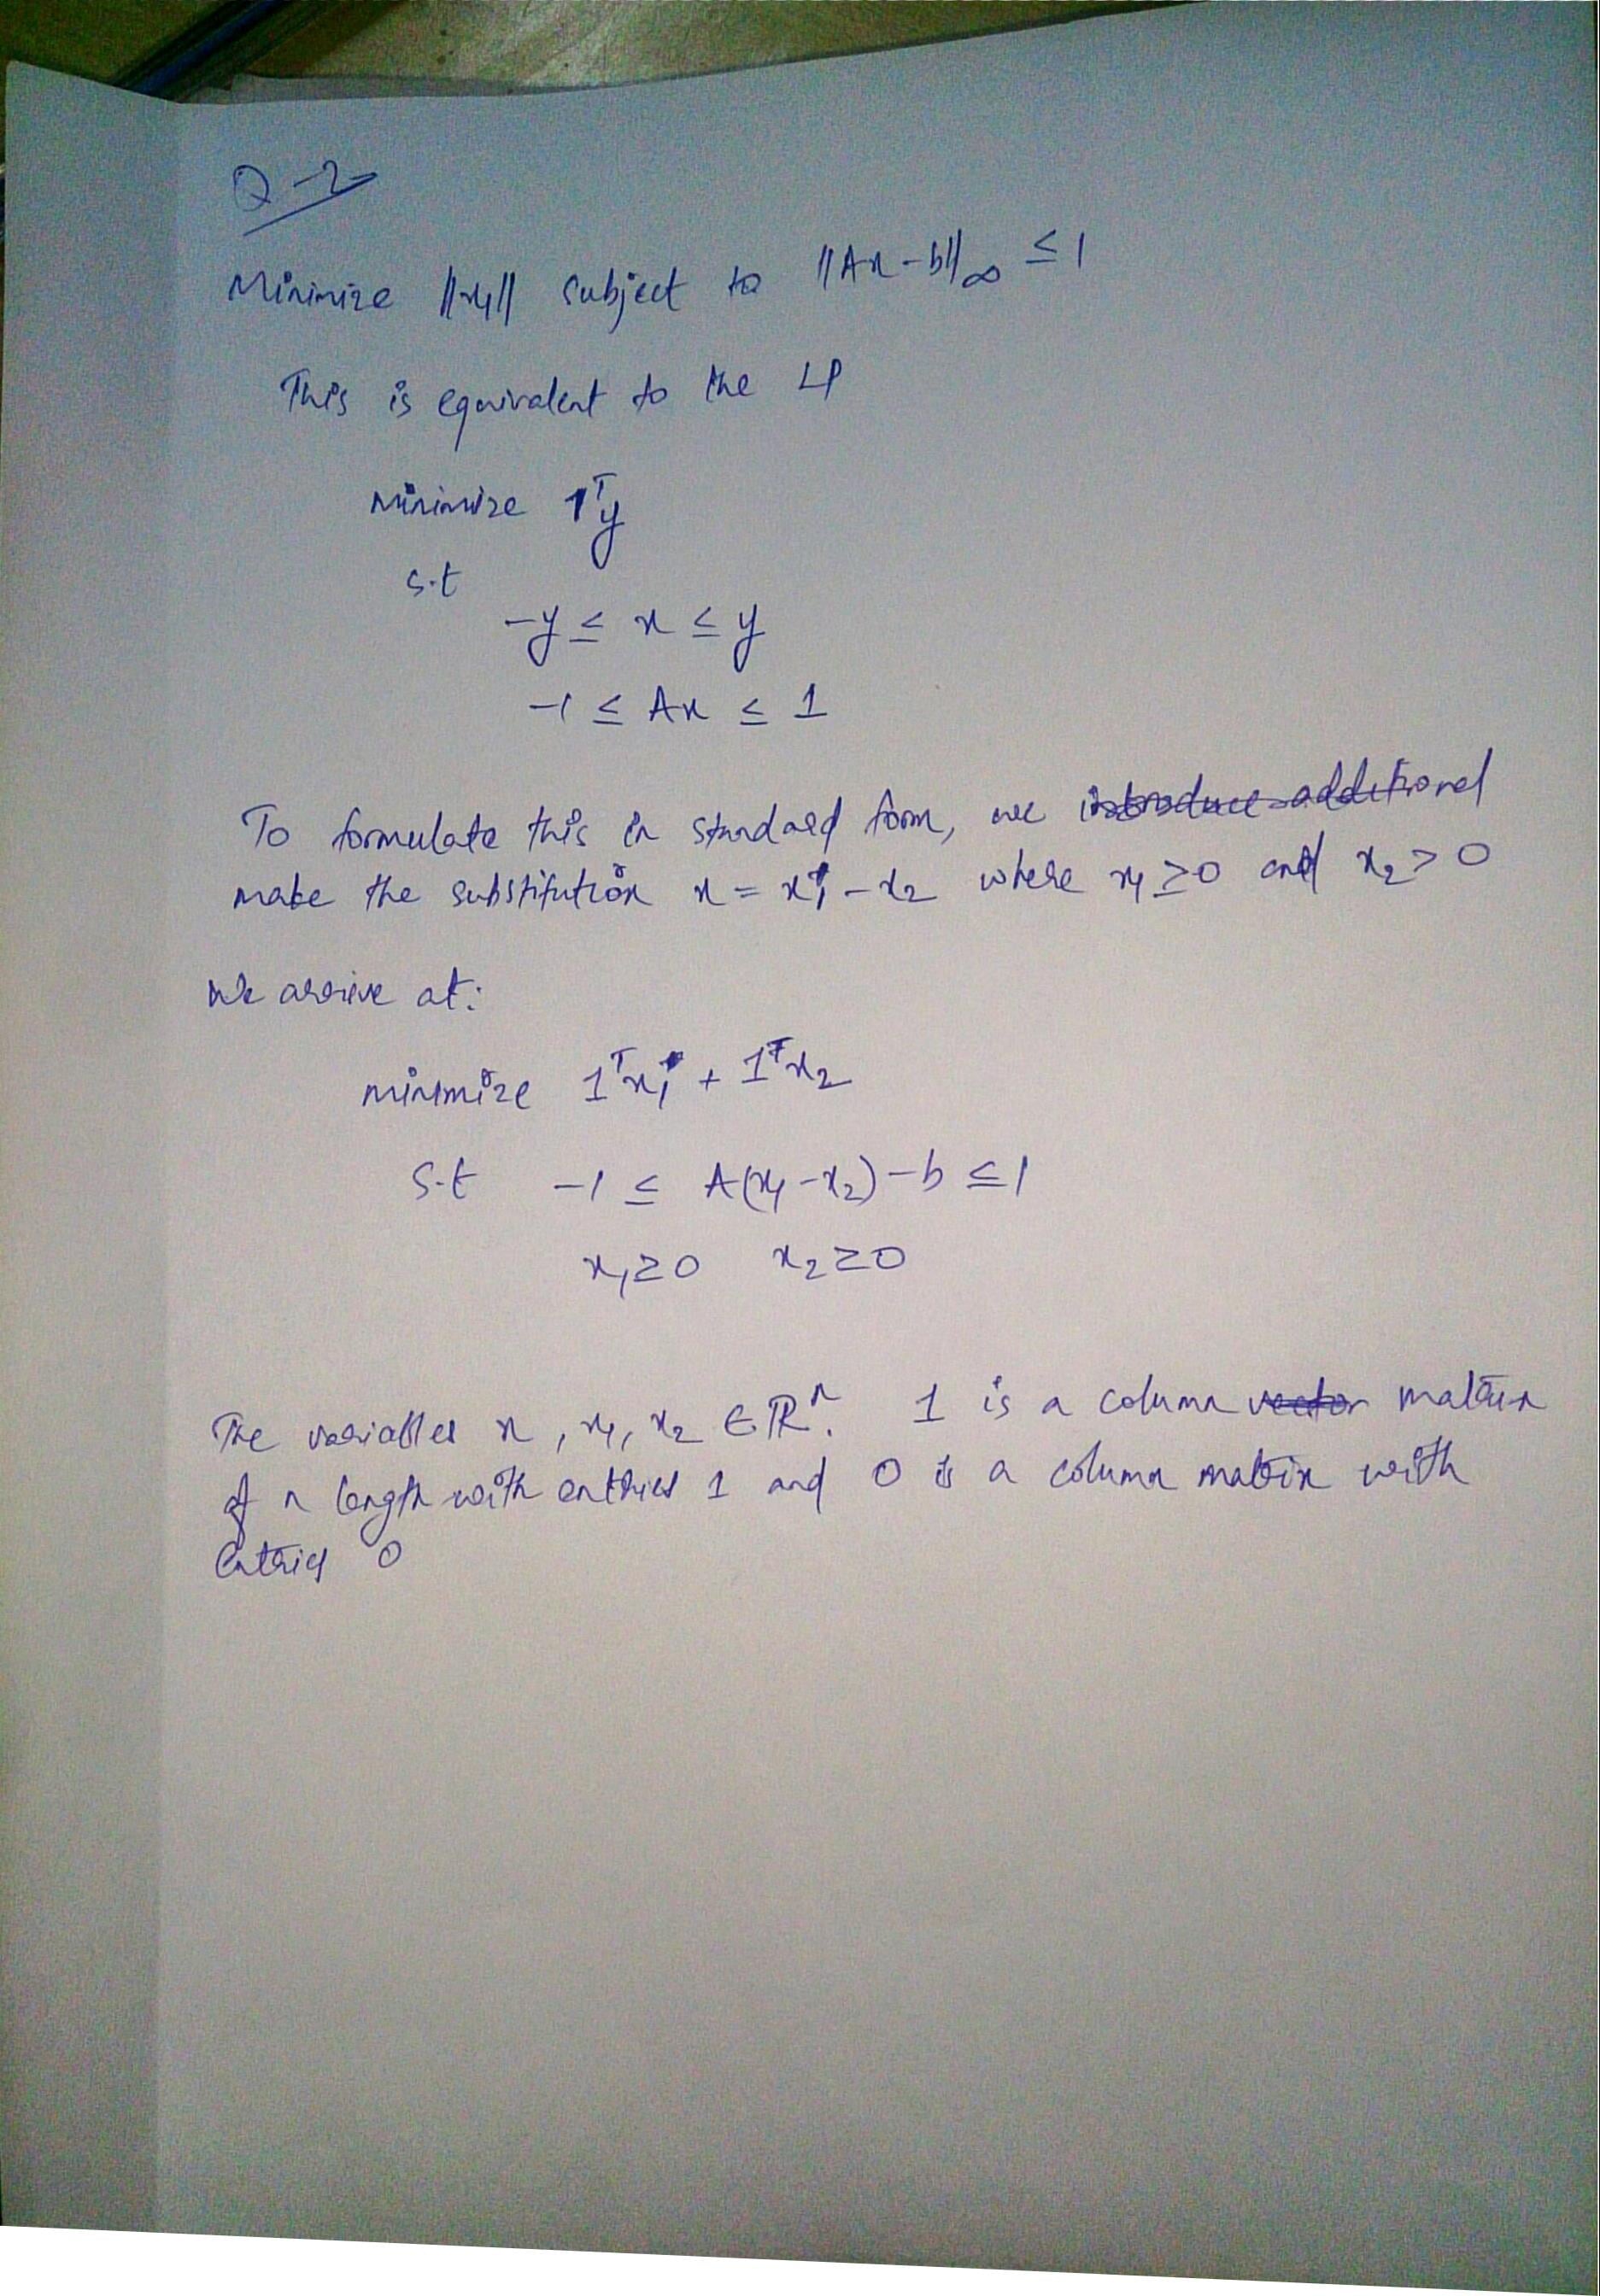 Q-2
Minimize ||x₁|| subject to ||Ax-b||∞ ≤ 1
This is equivalent to the LP
minimize 1ᵀy
s.t
-y ≤ x ≤ y
-1 ≤ Ax ≤ 1
To formulate this in standard form, we introduce additional
make the substitution x = x₁ - x₂ where x₁ ≥ 0 and x₂ > 0
We arrive at:
minimize 1ᵀx₁ + 1ᵀx₂
S.t -1 ≤ A(x₁ - x₂) - b ≤ 1
x₁ ≥ 0 x₂ ≥ 0
The variables x, x₁, x₂ ∈ ℝⁿ. 1 is a column vector matrix
of n length with entries 1 and 0 is a column matrix with
entries 0